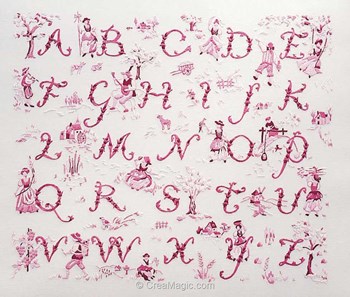 A B C D E
F G H I J K
L M N O P
Q R S T U
V W X Y Z
© CreaMagic.com